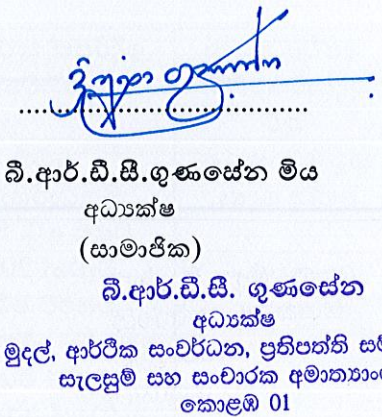 බී.ආර්.ඩී.සී.ගුණසේන මිය
අධ්‍යක්ෂ
(සාමාජික)
බී.ආර්.ඩී.සී. ගුණසේන
අධ්‍යක්ෂ
මුදල්, ආර්ථික සංවර්ධන, ප්‍රතිපත්ති
සැලසුම් සහ සංචාරක අමාත්‍යාං
කොළඹ 01